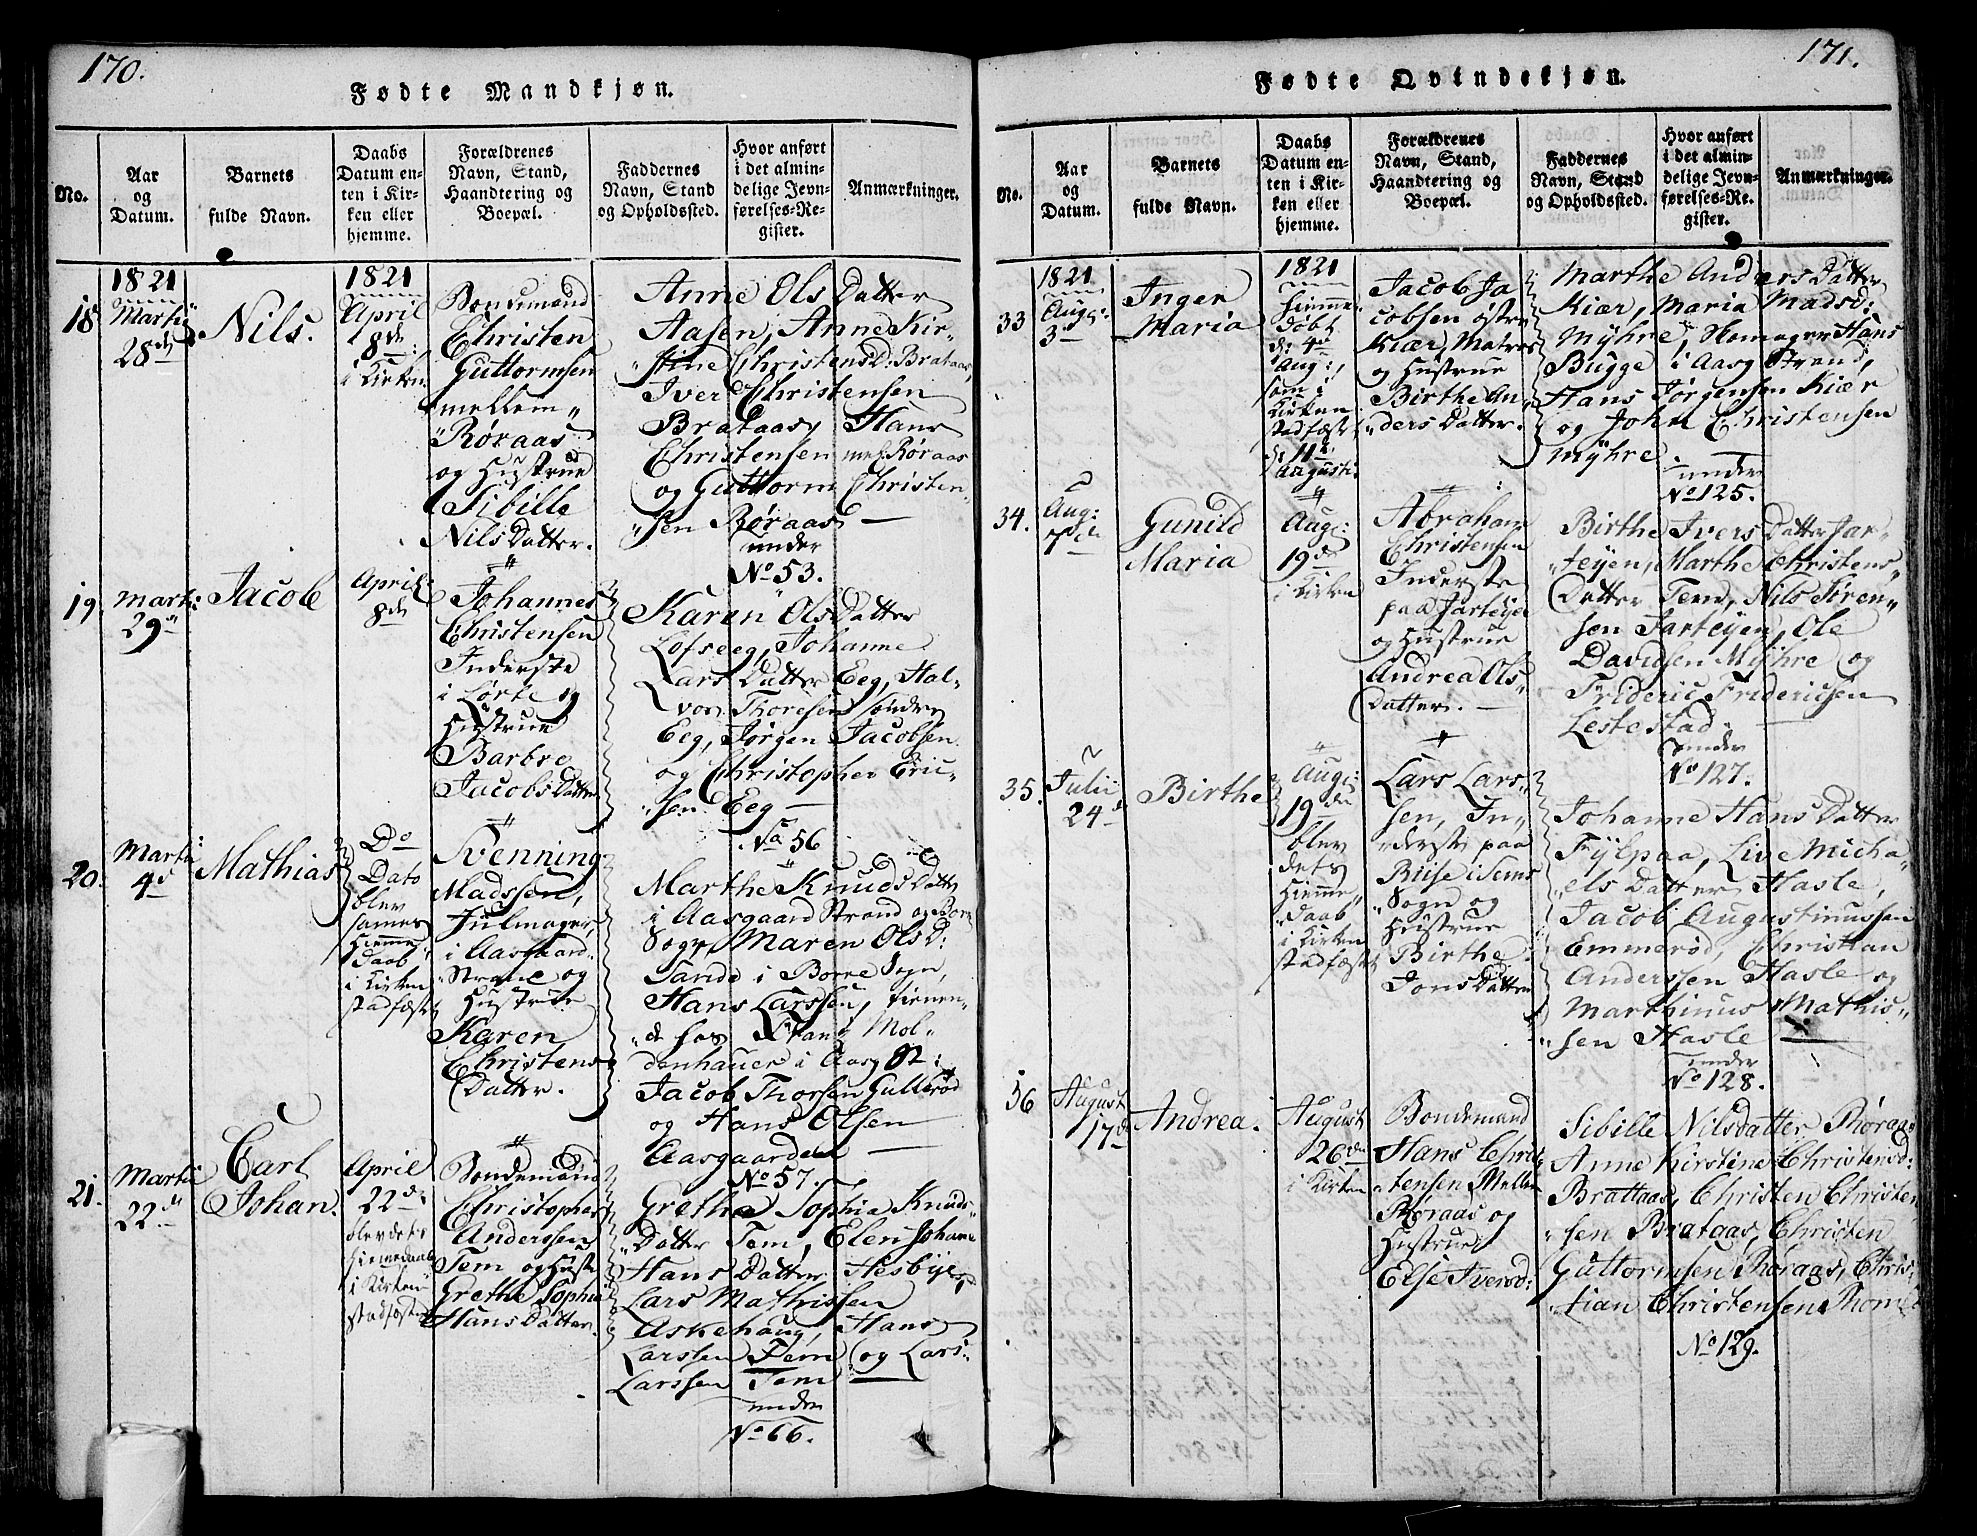 170.
Fødte Mandkjøn.
No.
Aar
og
Datum.
Barnets
fulde Navn.
Daabs
Datum en-
ten i Kir-
ken eller
hjemme.
Forældrenes
Navn, Stand,
Haandtering og
Boepæl.
Faddernes
Navn, Stand
og Opholdssted.
Hvor anført
i det almin-
delige Jevn-
førelses-Re-
gister.
Anmærkninger.
18
1821
Martii
28de
Nils.
1821
April
8de
i Kirken
Bondemand
Christen
Guttormsen
mellem
Røraas
og Hustrue
Sibille
Nils Datter.
Anne Ols Datter
Aasen, Anne Kir-
stine Christens D: Brataas,
Iver Christensen
Brataas, Hans
Christensen mel. Røraas
og Guttorm Christen
sen Røraas
under
No 53.
19.
Martii
29de
Jacob
April
8de
Johannes
Christensen
Inderste
i Lørke og
Hustrue
Barbre
Jacobs Datter
Karen Ols Datter
Lofseeg, Johanne
Lars Datter Eeg, Hal-
vor Thoresen søndre
Eeg, Jørgen Jacobsen
og Christopher Eric-
sen Eeg
No 56
20.
Martii
4de
Mathias
Do
Dato
blev
sammes
Hiemme
daab
i Kirken
stadfæst
Svenning
Madssen,
Julmager
i Aasgaard
Strand og
Hustrue
Karen
Christens
Datter.
Marthe Knuds Datter
i Aasgaard Strand og Borre
Sogn, Maren Ols D:
Sande i Borre Sogn,
Hans Larssen, tienen-
de hos Frantz Mol-
denhauer i Aasg St:
Jacob Thorsen Gullerød
og Hans Olsen
Aasgaarden
No 57.
21.
Martii
22de
Carl
Johan.
April
22de
blev dets
Hiemmedaab
i Kirken
stadfæstet
Bondemand
Christopher
Anderssen
Tem og Hust:
Grethe Sophia
Hans Datter.
Gretha Sophia Knuds
Datter Tem, Elen Johan
Hans Datter Hesbye
Lars Mathissen
Askehaug, Hans
Larssen Tem og Lars
Larssen Tem
under
No 66.
171.
Fødte Qvindekjøn.
No.
Aar
og
Datum.
Barnets
fulde Navn.
Daabs
Datum en-
ten i Kir-
ken eller
hjemme.
Forældrenes
Navn, Stand,
Haandtering og
Boepæl.
Faddernes
Navn, Stand
og Opholdssted.
Hvor anført
i det almin-
delige Jevn-
førelses-Re-
gister.
Anmærkninger.
33
1821
Aug:
3de
Inger
Maria
1821
hiemme
døbt
d: 4de
Aug:,
som i
Kirken
stadfæst
d: 11te
Augusti
Jacob Ja
cobsen østre
Kiær, Matros
og Hustrue
Birthe An
ders Datter.
Marthe Anders Datter
Kiær, Maria Madsd:
Myhre, Skomager Hans
Bugge i Aasg Strand,
Hans Jørgensen Kiær
og John Christensen
Myhre
under
No 125.
34.
Aug:
7de
Gunild
Maria
Aug:
19de
i Kirken
Abraham
Christensen
Inderste
paa Jarteyen
og Hustrue
Andrea Ols
Datter.
Birthe Ivers Datter Jar-
teyen, Marthe Christens
Datter Tem, Nils Søren-
sen Jarteyen, Ole
Davidsen Myhre og
Frideric Fridericsen
Lestestad
under
No 127.
35.
Julii
24de
Birthe
Aug:
19de
blev
dets
Hiemme
daab
i Kirken
stadfæst
Lars Lars
sen, In
derste paa
Biise i Sems
Sogn og
Hustrue
Birthe
Jons Datter
Johanne Hans Datter
Fylpaa, Live Micha-
els Datter Hasle,
Jacob Augustinussen
Emmerød, Christian
Anderssen Hasle og
Marthinus Mathis
sen Hasle
under
No 128.
36
August
17de
Andrea.
August
26de
i Kirken
Bondemand
Hans Chris
tensen Mellem
Røraas og
Hustrue
Else Iversd:
Sibille Nilsdatter Røraas
Anne Kirstine Christensd:
Brattaas, Christen Christen
sen Brataas, Christen
Guttormsen Røraas, Chris
tian Christensen
No 129.